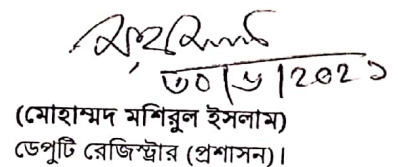 ৩০|৬|২০২১
(মোহাম্মদ মশিরুল ইসলাম)
ডেপুটি রেজিস্ট্রার (প্রশাসন)।